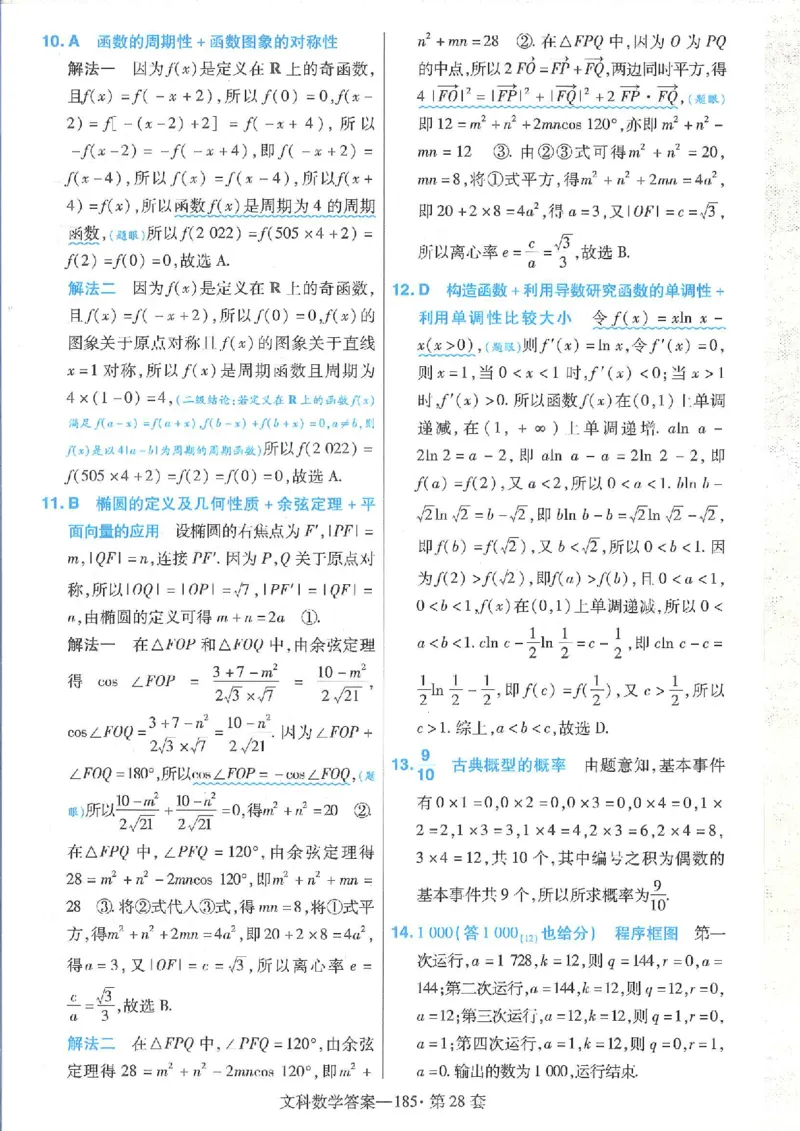 10. A 函数的周期性+函数图象的对称性
解法一 因为f(x)是定义在R上的奇函数,
且f(x)=f(-x+2),所以f(0)=0,f(x-
2)=f[-(x-2)+2]=f(-x+4),所以
-f(x-2)=-f(-x+4),即f(-x+2)=
f(x-4),所以f(x)=f(x-4),所以f(x+
4)=f(x),所以函数f(x)是周期为4的周期
函数,(题眼)所以f(2 022)=f(505×4+2)=
f(2)=f(0)=0,故选A.
解法二 因为f(x)是定义在R上的奇函数,
且f(x)=f(-x+2),所以f(0)=0,f(x)的
图象关于原点对称且f(x)的图象关于直线
x=1对称,所以f(x)是周期函数且周期为
4×(1-0)=4,(二级结论:若定义在R上的函数f(x)
满足f(a-x)=f(a+x),f(b-x)+f(b+x)=0,a≠b,则
f(x)是以4|a-b|为周期的周期函数)所以f(2 022)=
f(505×4+2)=f(2)=f(0)=0,故选A.
11. B 椭圆的定义及几何性质+余弦定理+平
面向量的应用 设椭圆的右焦点为F′,|PF|=
m,|QF|=n,连接PF′.因为P,Q关于原点对
称,所以|OQ|=|OP|=√7,|PF′|=|QF|=
n,由椭圆的定义可得m+n=2a ①.
解法一 在△FOP和△FOQ中,由余弦定理
得 cos ∠FOP = (3+7-m²)/(2√3×√7) = (10-m²)/(2√21),
cos∠FOQ=(3+7-n²)/(2√3×√7)=(10-n²)/(2√21).因为∠FOP+
∠FOQ=180°,所以cos∠FOP=-cos∠FOQ,(题
眼)所以(10-m²)/(2√21)+(10-n²)/(2√21)=0,得m²+n²=20 ②.
在△FPQ中,∠PFQ=120°,由余弦定理得
28=m²+n²-2mncos 120°,即m²+n²+mn=
28 ③.将②式代入③式,得mn=8,将①式平
方,得m²+n²+2mn=4a²,即20+2×8=4a²,
得a=3,又|OF|=c=√3,所以离心率e=
c/a=√3/3,故选B.
解法二 在△FPQ中,∠PFQ=120°,由余弦
定理得28=m²+n²-2mncos 120°,即m²+
n²+mn=28 ②.在△FPQ中,因为O为PQ
的中点,所以2FO→=FP→+FQ→,两边同时平方,得
4|FO→|²=|FP→|²+|FQ→|²+2FP→·FQ→,(题眼)
即12=m²+n²+2mncos 120°,亦即m²+n²-
mn=12 ③.由②③式可得m²+n²=20,
mn=8,将①式平方,得m²+n²+2mn=4a²,
即20+2×8=4a²,得a=3,又|OF|=c=√3,
所以离心率e=c/a=√3/3,故选B.
12. D 构造函数+利用导数研究函数的单调性+
利用单调性比较大小 令f(x)=xln x-
x(x>0),(题眼)则f′(x)=ln x,令f′(x)=0,
则x=1,当0<x<1时,f′(x)<0;当x>1
时,f′(x)>0.所以函数f(x)在(0,1)上单调
递减,在(1,+∞)上单调递增.aln a-
2ln 2=a-2,即aln a-a=2ln 2-2,即
f(a)=f(2),又a<2,所以0<a<1.bln b-
√2ln √2=b-√2,即bln b-b=√2ln √2-√2,
即f(b)=f(√2),又b<√2,所以0<b<1.因
为f(2)>f(√2),即f(a)>f(b),且0<a<1,
0<b<1,f(x)在(0,1)上单调递减,所以0<
a<b<1.cln c-1/2 ln 1/2=c-1/2,即cln c-c=
1/2 ln 1/2-1/2,即f(c)=f(1/2),又c>1/2,所以
c>1.综上,a<b<c,故选D.
13. 9/10 古典概型的概率 由题意知,基本事件
有0×1=0,0×2=0,0×3=0,0×4=0,1×
2=2,1×3=3,1×4=4,2×3=6,2×4=8,
3×4=12,共10个,其中编号之积为偶数的
基本事件共9个,所以所求概率为9/10.
14. 1 000(答1 000₍₁₂₎也给分) 程序框图 第一
次运行,a=1 728,k=12,则q=144,r=0,a=
144;第二次运行,a=144,k=12,则q=12,r=0,
a=12;第三次运行,a=12,k=12,则q=1,r=0,
a=1;第四次运行,a=1,k=12,则q=0,r=1,
a=0.输出的数为1 000,运行结束.
文科数学答案—185·第28套